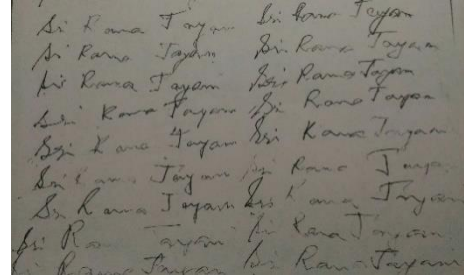 Sri Rama Jayam Sri Rama Jayam
Sri Rama Jayam Sri Rama Jayam
Sri Rama Jayam Sri Rama Jayam
Sri Rama Jayam Sri Rama Jayam
Sri Rama Jayam Sri Rama Jayam
Sri Rama Jayam Sri Rama Jayam
Sri Rama Jayam Sri Rama Jayam
Sri Ram Jayam Sri Rama Jayam
Sri Rama Jayam Sri Rama Jayam